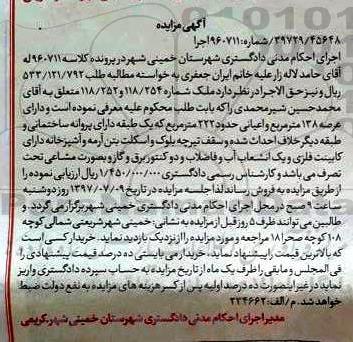 آگهی مزایده
۳۹۷۲۹/۴۵۶۴۸/شماره:۹۶۰۷۱۱اجرا
اجرای احکام مدنی دادگستری شهرستان خمینی شهر در پرونده کلاسه ۹۶۰۷۱۱له
آقای حامد لاله زار علیه خانم ایران جعفری به خواسته مطالبه طلب ۵۳۳/۱۲۱/۷۹۲
ریال و نیز حق الاجرا در نظر دارد ملک شماره ۱۱۸/۲۵۴ و ۱۱۸/۲۵۲ متعلق به آقای
محمدحسین شیرمحمدی را که بابت طلب محکوم علیه معرفی نموده است و دارای
عرصه ۱۳۸ مترمربع و اعیانی حدود ۲۲۲ مترمربع که یک طبقه دارای پروانه ساختمانی و
طبقه دیگر خلاف احداث شده و سقف تیرچه بلوک و اسکلت بتن آرمه و آشپزخانه دارای
کابینت فلزی و یک انشعاب آب و فاضلاب و دو کنتور برق و گاز و بصورت مشاعی تحت
تصرف می باشد و کارشناس رسمی دادگستری ۱/۴۵۰/۰۰۰/۰۰۰ ریال ارزیابی نموده را
از طریق مزایده به فروش رساند لذا جلسه مزایده در تاریخ ۱۳۹۷/۰۷/۰۹ روز دوشنبه
ساعت ۹ صبح در محل اجرای احکام مدنی دادگستری خمینی شهر برگزار می گردد. و
طالبین می توانند ظرف ۵ روز قبل از مزایده به نشانی: خمینی شهر شریعتی شمالی کوچه
۱۰۸ کوچه صحرا ۱۸ مراجعه و مورد مزایده را از نزدیک بازدید نماید. خریدار کسی است
که بالاترین قیمت را پیشنهاد نماید. خریدار می بایستی ده درصد قیمت پیشنهادی را
فی المجلس و مابقی را ظرف یک ماه از تاریخ مزایده به حساب سپرده دادگستری واریز
نماید در غیر اینصورت ده درصد اولیه پس از کسر هزینه های مزایده به نفع دولت ضبط
خواهد شد. م/الف: ۲۳۴۶۶۲
مدیر اجرای احکام مدنی دادگستری شهرستان خمینی شهر.کریمی